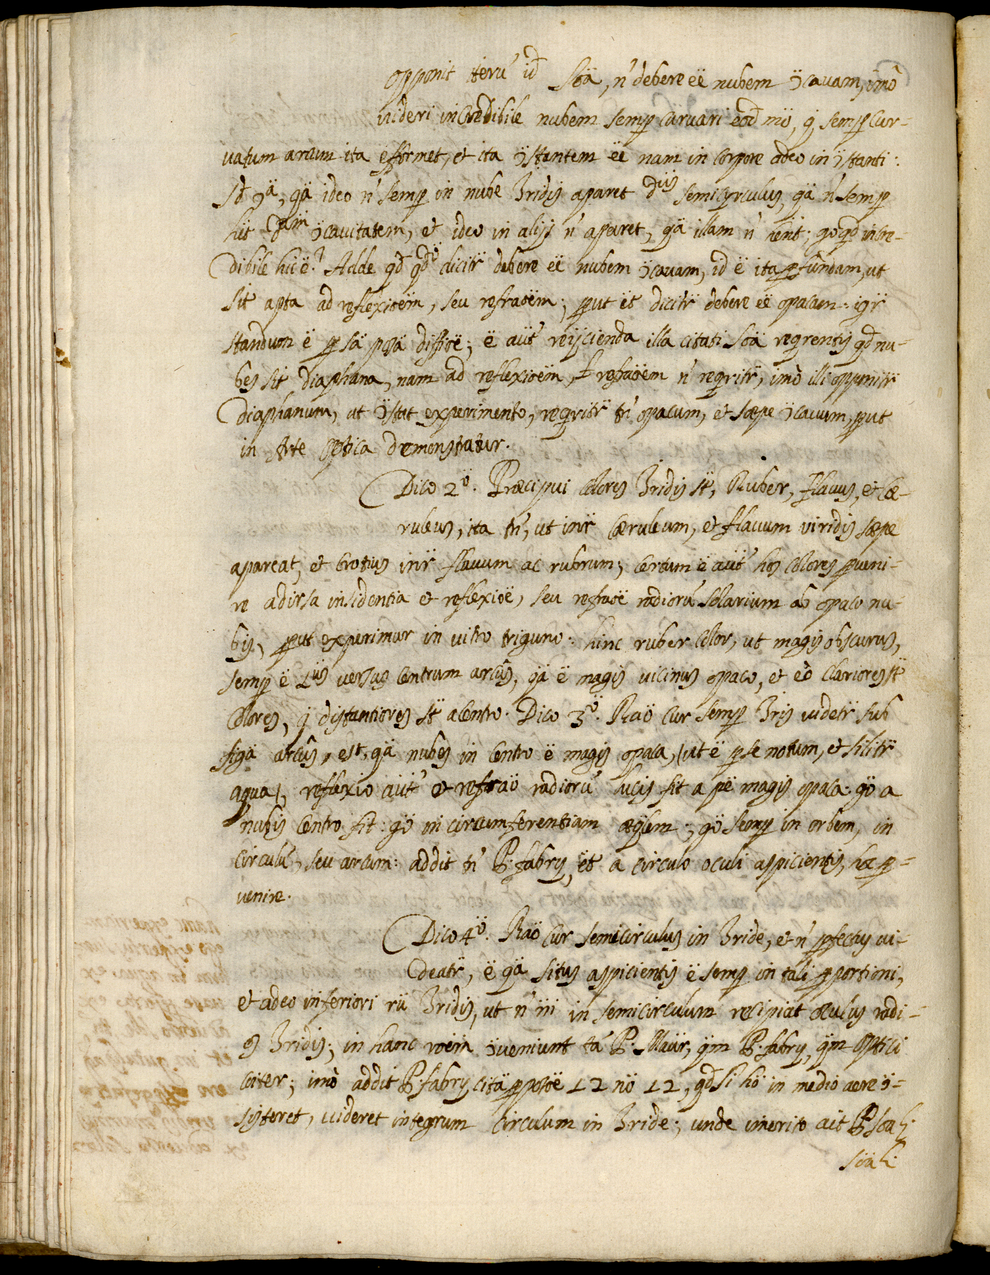 opponit iterũ id̃ Söa, ñ debere eẽ nubem ɔcavam, imò
videri incredibile nubem semp̱ curvari eod̃ mö, q̨ semp̱ cur-
vatum arcum ita efformet, et ita ɔstantem eẽ nam in corpore adeo inɔstanti:
Sd̃ ɔ̈a, qä ideo ñ semp̱ in nube Iridis aparet dus semicyrculus, qä ñ semp̱
hẽt dam ɔcavitatem, et ideo in alijs ñ aparet, qä illam ñ hẽnt; qd̃ incre-
dibile hic ë? Adde, qd̃ qdo dicitr̃ debere eẽ nubem ɔcavam, id ë ita p̱fundam, ut
sit apta ad reflexiöem, seu refraöem; p̱ut ët dicitr̃ debere eẽ opacam: igr̃
standum ë p̱ sä posä diffiöe; ë aüt reijcienda illa citati Söa reqrentis qd̃ nu-
bes sit diaphana, nam ad reflexiöem, refraöem ñ reqritr̃, imò illi opponitr̃
Diaphanum, ut ɔstat experimento, reqritr̃ tñ opacum, et sæpe ɔcavum, p̱ut
in Arte Optica demonstatur.
Dico 2ö. Præcipui colores Iridis st̃, Ruber, flavus, et cæ-
ruleus, ita tñ, ut intr̃ cæruleum, et flavum viridis sæpe
apareat, et croceus intr̃ flavum ac rubrum; certum ë aüt hos colores p̱veni-
re a dirsa insidentia et reflexiöe, seu refraöe radiorũ solarium ab opaco nu-
bis, p̱ut experimur in vitro triguno: hinc ruber color, ut magis obscurus,
semp̱ ë versus centrum arcûs, qä ë magis vicinus opaco, et eò clariores st̃
colores, q̨ distantiores st̃ a centro. Dico 3ö. Raö cur semp̱ Iris videtr̃ sub
figä arcûs, est, qä nubes in centro ë magis opaca, (ut ë p̱ se notum, et silitr̃
aqua), reflexio aüt et refraö radiorũ lucis fit a pë magis opaca: gö a
nubis centro fit: gö in circumferentiam æqlem; gö semp̱ in orbem, in
circulũ, seu arcum: addit tñ P. fabry, ët a circulo oculi aspicientis, hoc p̱-
venire.
Dico 4ö. Raö cur semicirculus in Iride, et ñ p̱fectus vi-
deatr̃, ë qä situs aspicientis ë semp̱ in tali p̱portioni,
et adeo inferiori rũ Iridis, ut ñ ni in semicirculum recipiat oculus radi-
os Iridis; in hanc röem ɔveniunt tä P. Maür, qm P. fabry, qm optici
coiter; imò addit P. fabry, citä p̱posöe 12 nö 12, qd̃ si hö in medio aere ɔ-
sisteret, videret integrum circulum in Iride; unde imerito ait P. Söa
Söa